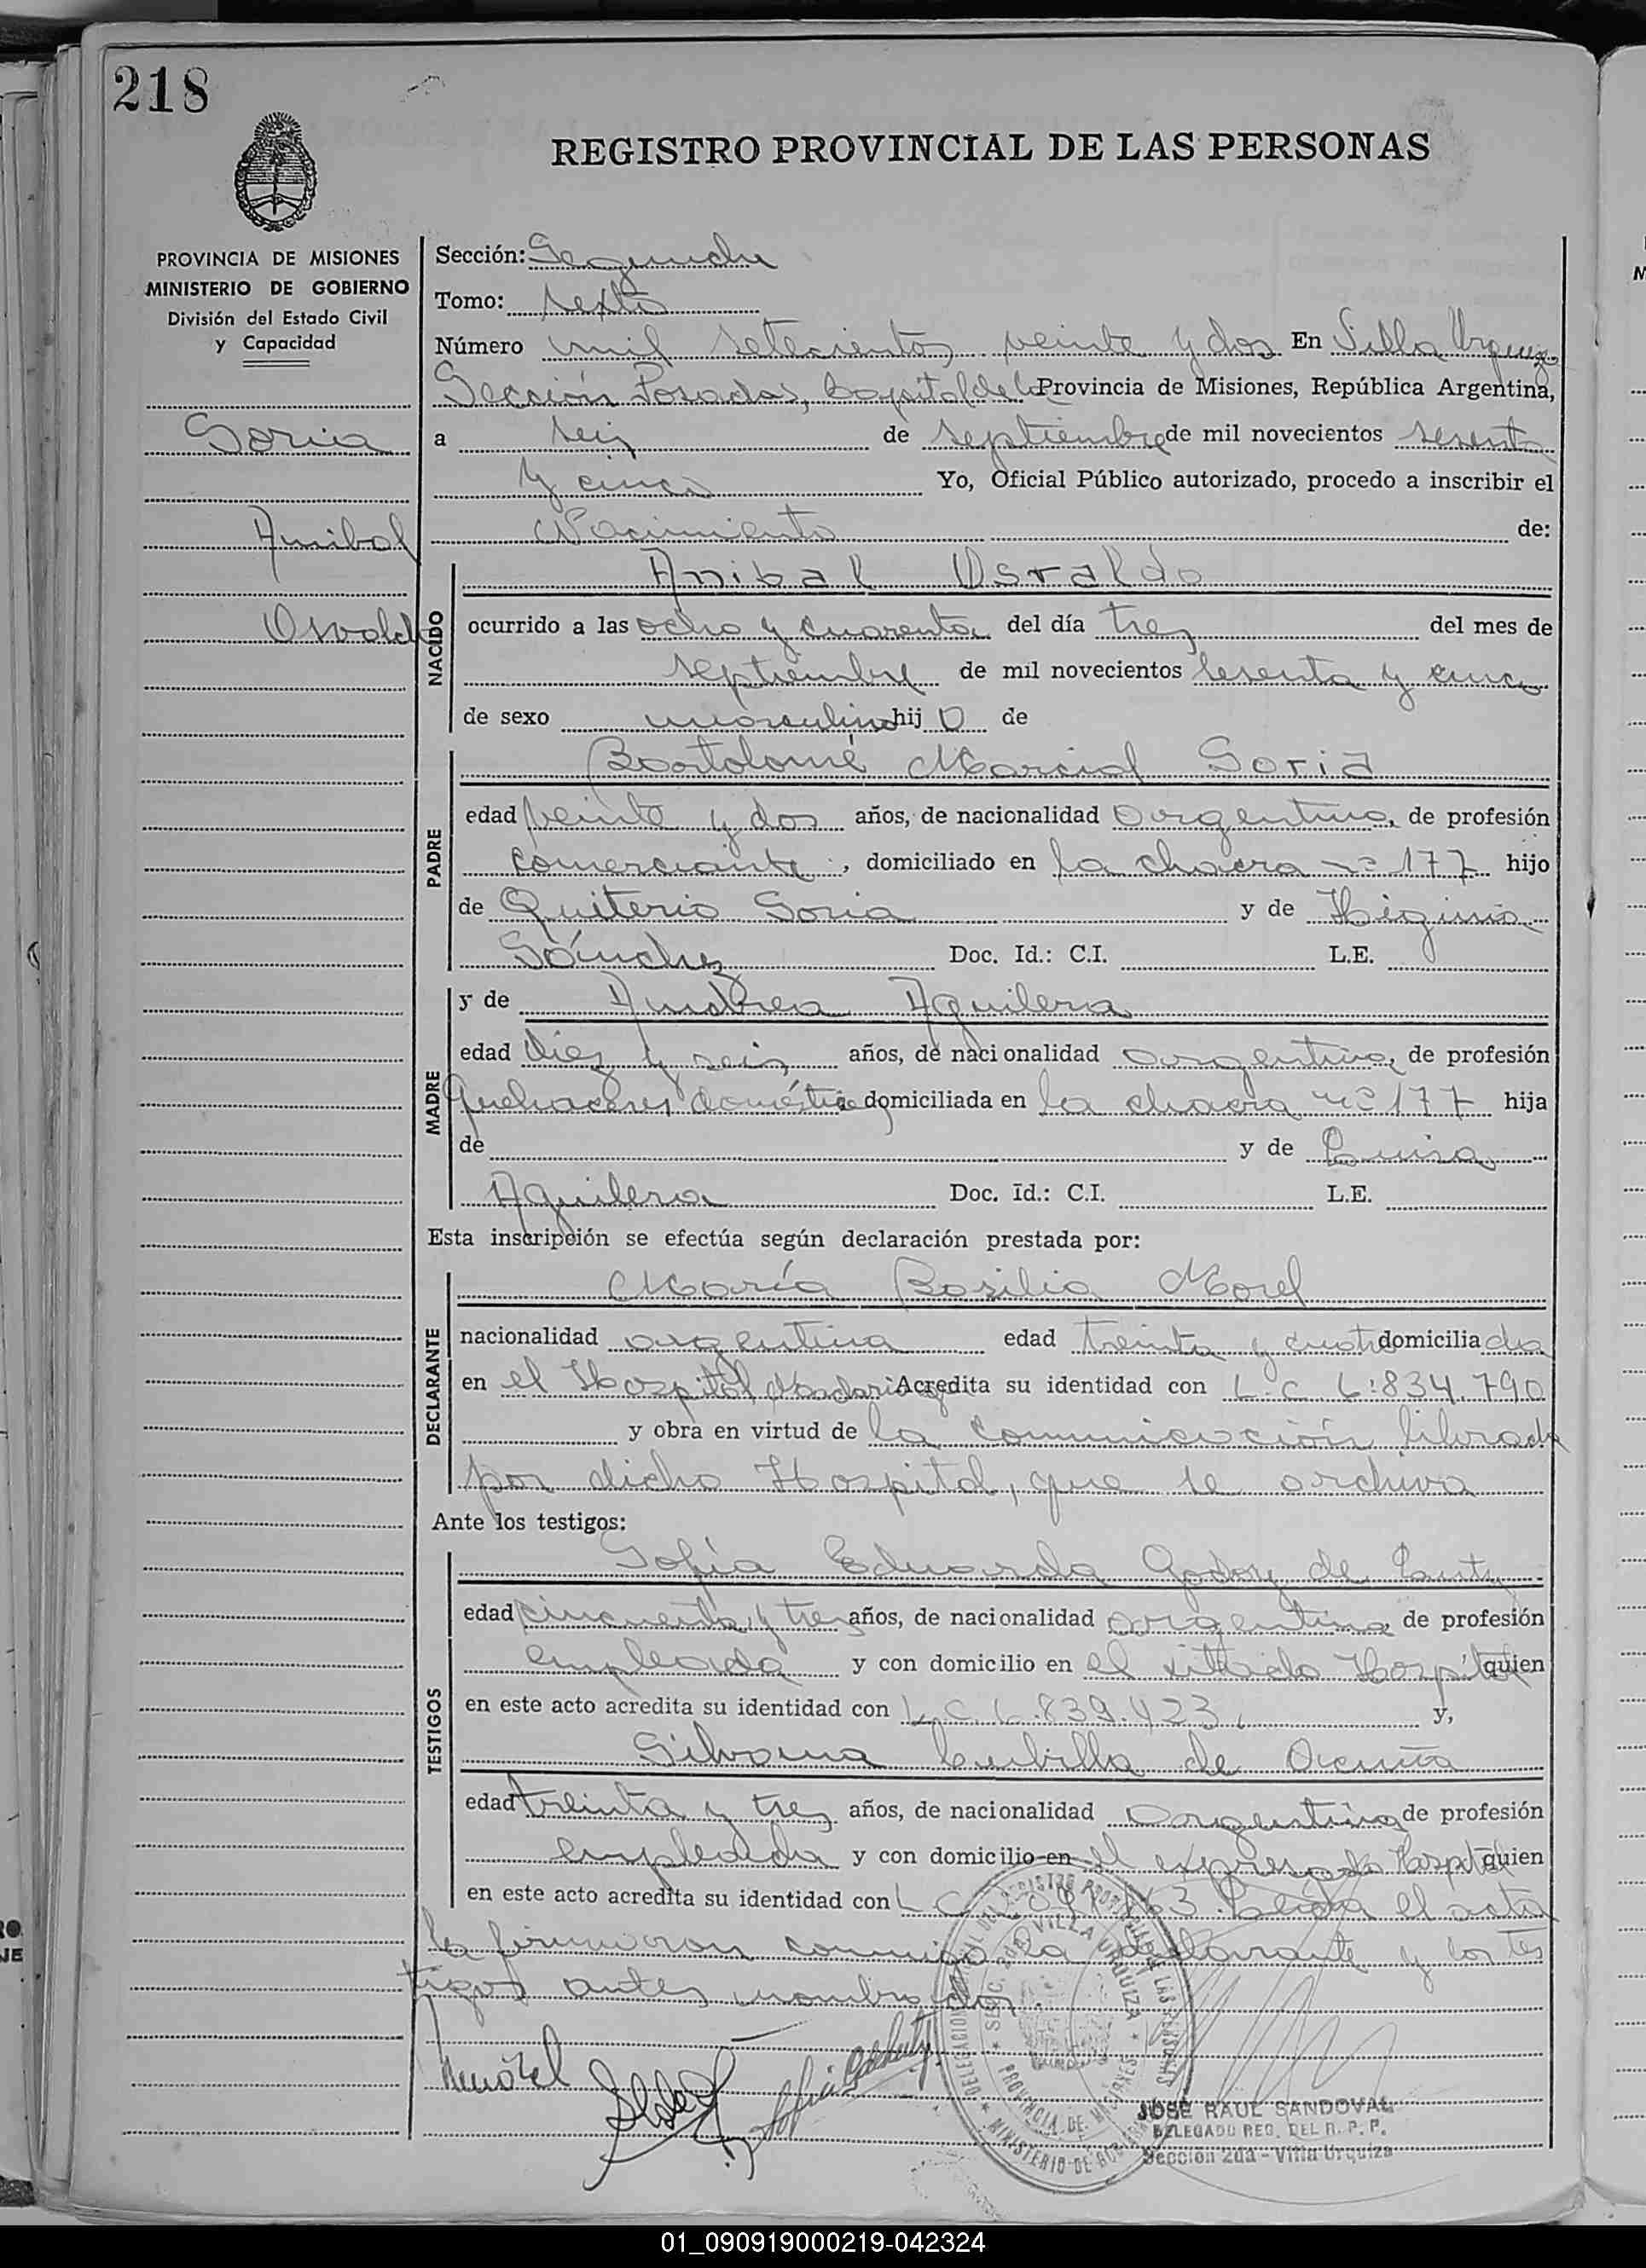 218
REGISTRO PROVINCIAL DE LAS PERSONAS
PROVINCIA DE MISIONES
MINISTERIO DE GOBIERNO
División del Estado Civil
y Capacidad
Soria
Anibal
Osvaldo
Sección: Segunda
Tomo: sexto
Número mil setecientos veinte y dos En Villa Urquiza
Sección Posadas, Capital de la Provincia de Misiones, República Argentina,
a seis de septiembre de mil novecientos sesenta
y cinco Yo, Oficial Público autorizado, procedo a inscribir el
Nacimiento de:
NACIDO
Anibal Osvaldo
ocurrido a las ocho y cuarenta del día tres del mes de
septiembre de mil novecientos sesenta y cinco
de sexo masculino hij o de
PADRE
Bartolomé Marcial Soria
edad veinte y dos años, de nacionalidad argentina, de profesión
comerciante, domiciliado en la chacra nº 177 hijo
de Quiterio Soria y de Higinia
Sánchez Doc. Id.: C.I. L.E.
MADRE
y de Andrea Aguilera
edad diez y seis años, de nacionalidad argentina, de profesión
quehaceres domésticos domiciliada en la chacra nº 177 hija
de y de Luisa
Aguilera Doc. Id.: C.I. L.E.
Esta inscripción se efectúa según declaración prestada por:
DECLARANTE
María Basilia Morel
nacionalidad argentina edad treinta y cuatro domiciliada
en el Hospital Madariaga Acredita su identidad con L.C. 6:834.790
y obra en virtud de la comunicación librada
por dicho Hospital, que se archiva
Ante los testigos:
TESTIGOS
Sofía Eduarda Godoy de
edad cincuenta y tres años, de nacionalidad argentina, de profesión
empleada y con domicilio en el citado Hospital quien
en este acto acredita su identidad con L.C. 6.839.423, y,
Silvana Cubilla de Ocaña
edad treinta y tres años, de nacionalidad argentina de profesión
empleada y con domicilio en el expresado Hospital quien
en este acto acredita su identidad con L C Leída el acta
la firmaron conmigo la declarante y los tes
tigos antes nombrados
JOSE RAUL SANDOVAL
DELEGADO REG. DEL R. P. P.
Sección 2da - Villa Urquiza
01_090919000219-042324